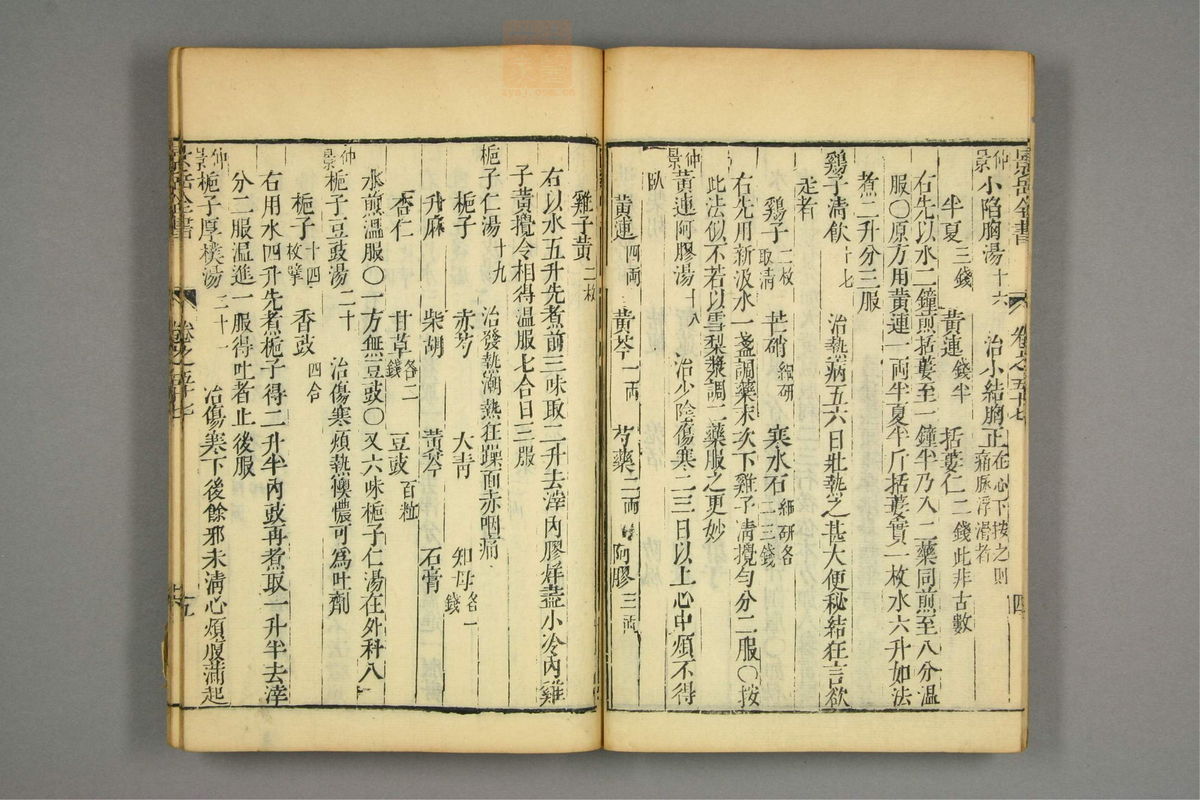 景岳全書 卷之五十七 四
仲景小陷胸湯十六 治小結胸正在心下按之則痛脉浮滑者
半夏三錢 黃連一錢半 括蔞仁二錢此非古數
右先以水二鐘煎括蔞至一鐘半乃入二藥同煎至八分溫
服〇原方用黃連一兩半夏半斤括蔞實一枚水六升如法
煮二升分三服
鷄子清飲十七 治熱病五六日壯熱之甚大便秘結狂言欲
走者
鷄子二枚取清 芒硝細研 寒水石細研各二三錢
右先用新汲水一盞調藥末次下雞子清攪勻分二服〇按
此法似不若以雪梨漿調二藥服之更妙
仲景黃連阿膠湯十八 治少陰傷寒二三日以上心中煩不得
臥
黃連四兩 黃芩一兩 芍藥二兩 阿膠三兩
雞子黃二枚
右以水五升先煮前三味取二升去滓內膠烊盡小冷內雞
子黃攪令相得溫服七合日三服
梔子仁湯十九 治發熱潮熱狂躁面赤咽痛
梔子 赤芍 大青 知母各一錢
升麻 柴胡 黃芩 石膏
杏仁 甘草各二錢 豆豉百粒
水煎溫服〇一方無豆豉〇又六味梔子仁湯在外科八
仲景梔子豆豉湯二十 治傷寒煩熱懊憹可為吐劑
梔子十四枚擘 香豉四合
右用水四升先煮梔子得二升半內豉再煮取一升半去滓
分二服溫進一服得吐者止後服
仲景梔子厚樸湯二十一 治傷寒下後餘邪未清心煩腹滿起
景岳全書 卷之五十七 五